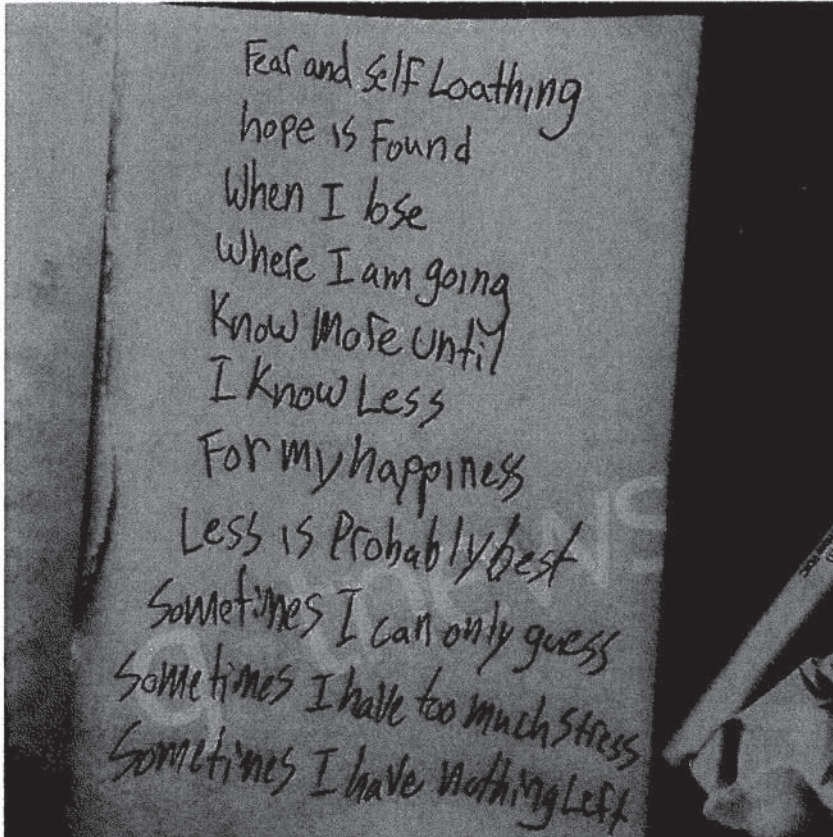 Fear and Self Loathing
hope is Found
When I lose
Where I am going
Know More until
I Know Less
For my happiness
Less is Probably best
Sometimes I can only guess
Sometimes I have too much Stress
Sometimes I have nothing Left